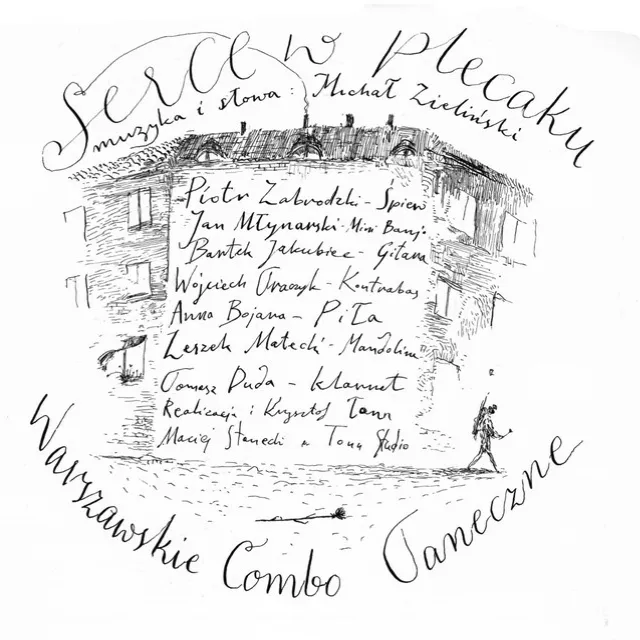 Serce w plecaku
muzyka i słowa: Michał Zieliński
Piotr Zabrodzki - Śpiew
Jan Młynarski - Mini Banjo
Bartek Jakubiec - Gitara
Wojciech Traczyk - Kontrabas
Anna Bojara - Piła
Leszek Małecki - Mandolina
Tomasz Duda - klarnet
Realizacja i Krzysztof Tonn
Maciej Stanecki Tonn Studio
Warszawskie Combo Taneczne